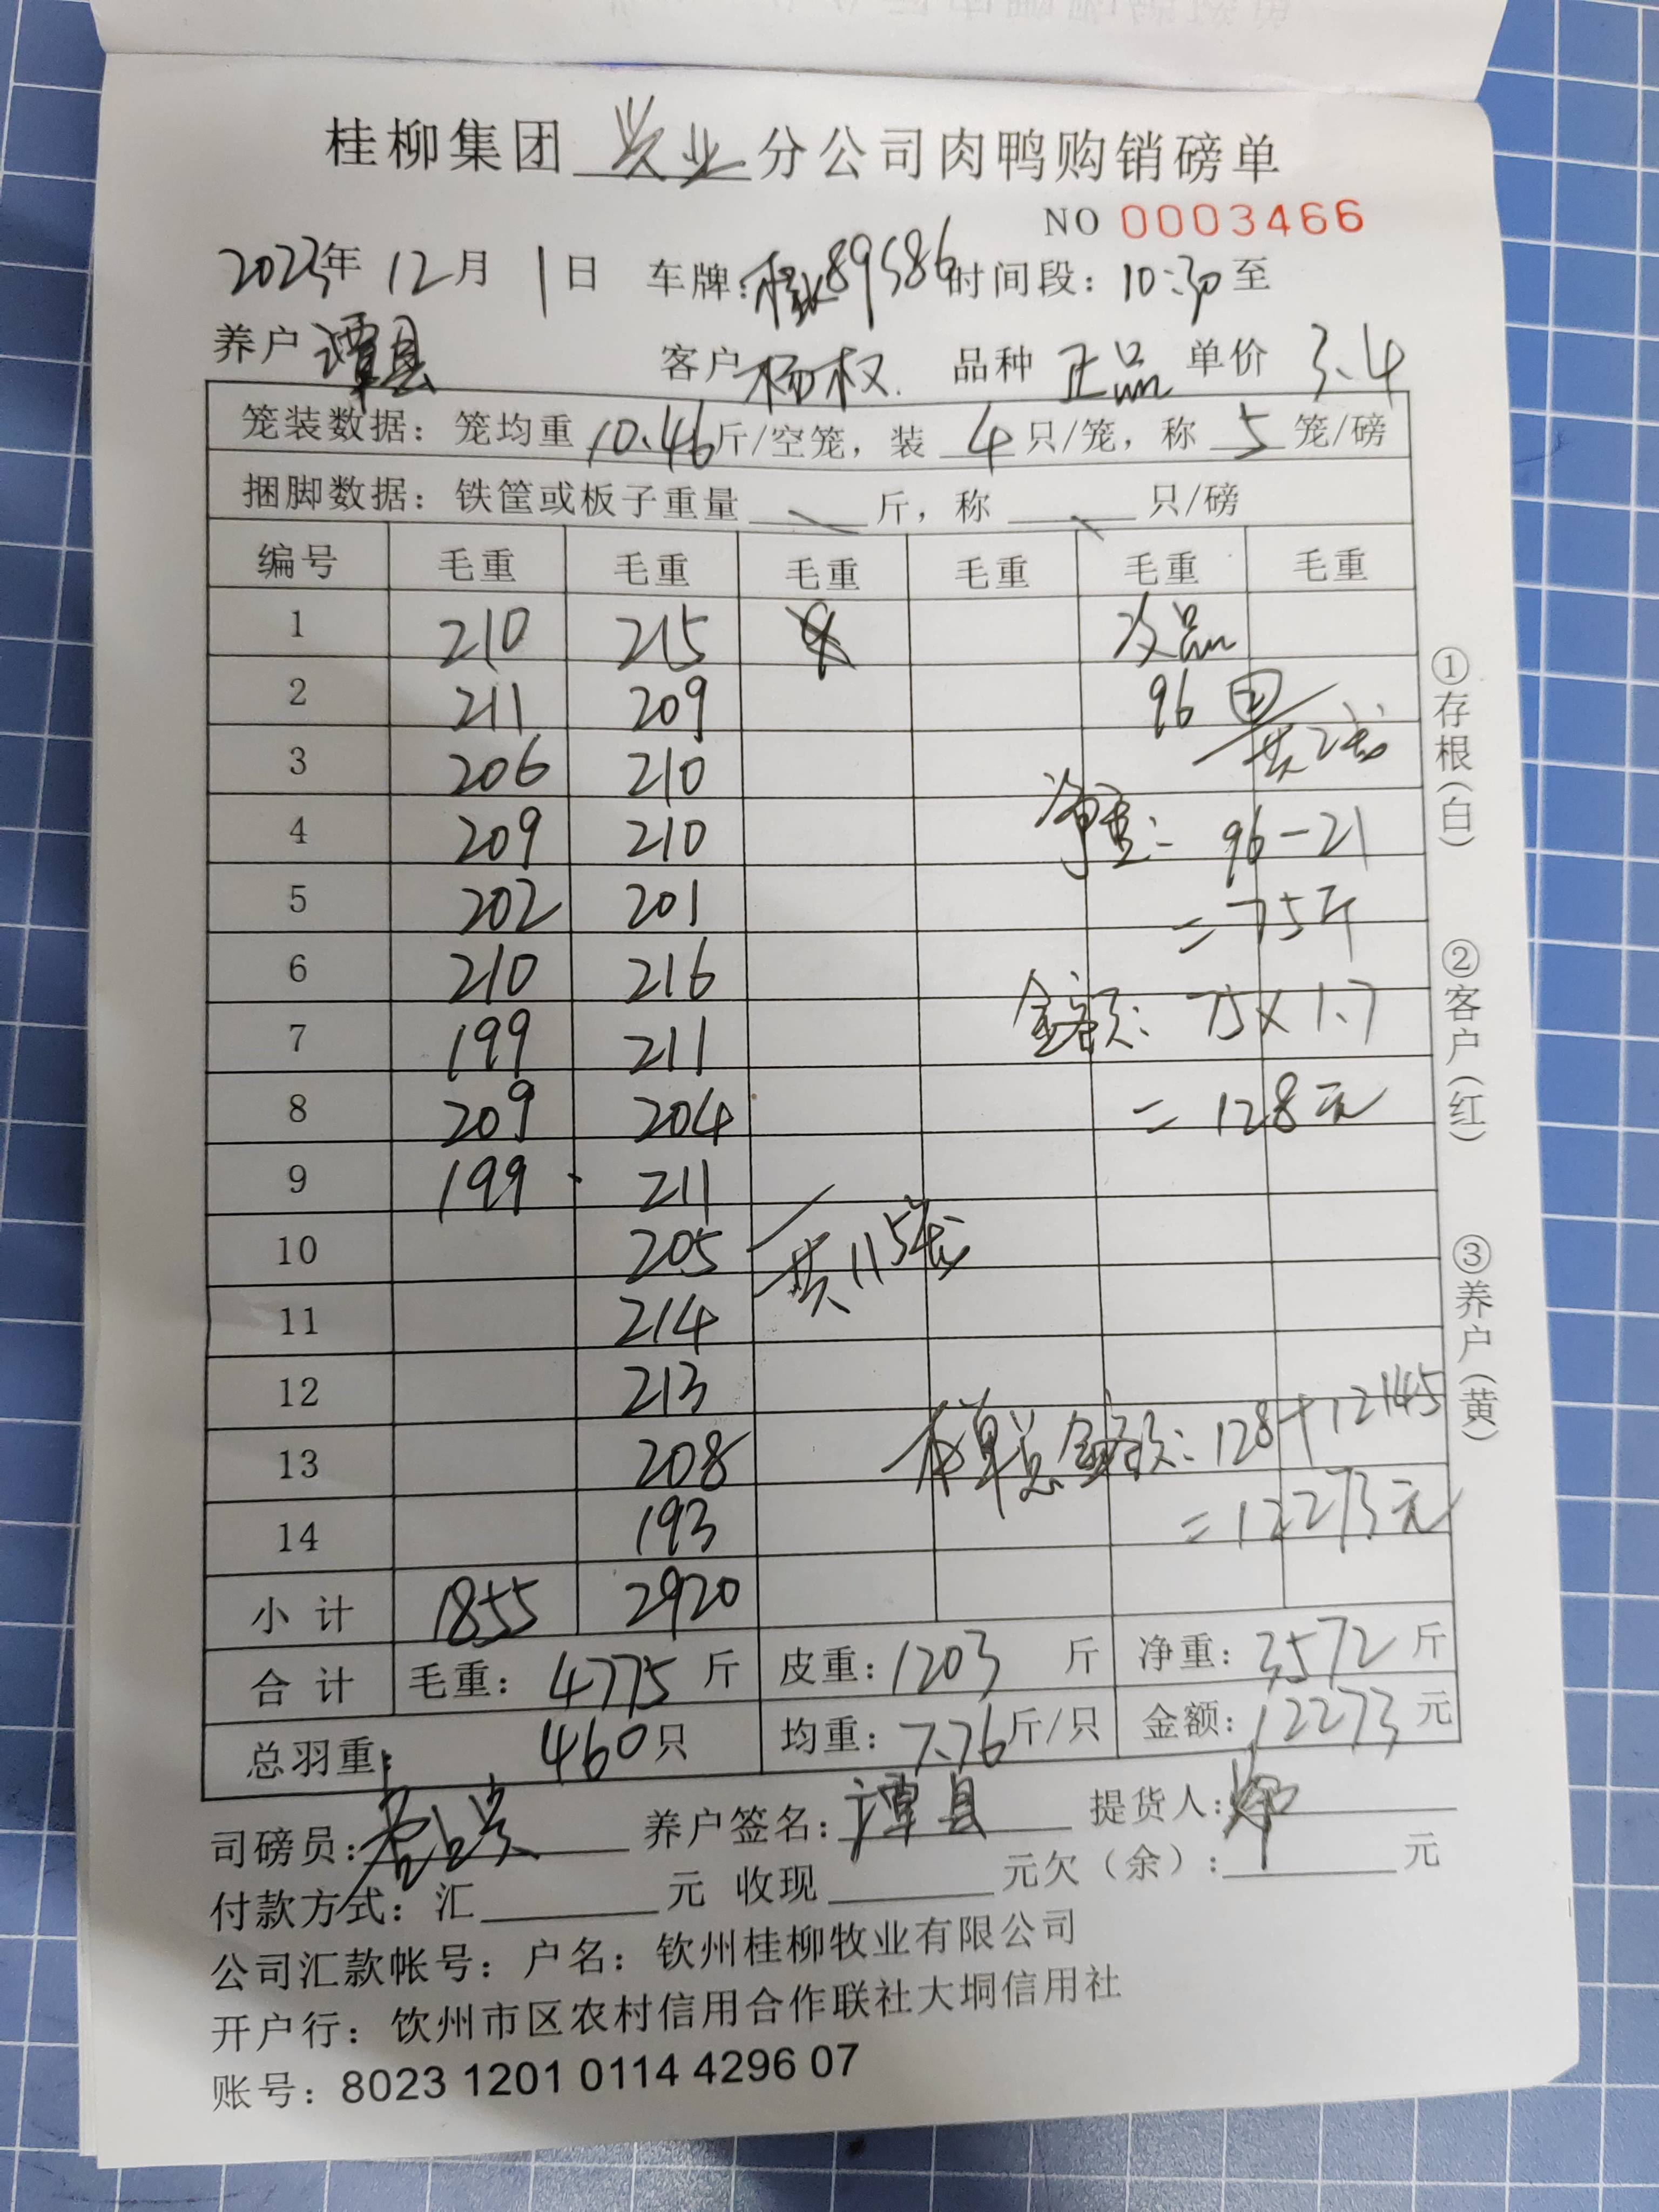 桂柳集团 兴业 分公司肉鸭购销磅单
NO 0003466
2023年 12月 1日 车牌: 桂 89586 时间段: 10:30 至
养户 谭县 客户 杨权 品种 正品 单价 3.4
笼装数据: 笼均重 10.46 斤/空笼, 装 4 只/笼, 称 5 笼/磅
捆脚数据: 铁筐或板子重量 斤, 称 只/磅
编号 毛重 毛重 毛重 毛重 毛重 毛重
1 210 215 次品
2 211 209 96 ② 共2笼
3 206 210
4 209 210 净重: 96-21
5 202 201 =75斤
6 210 216
7 199 211 金额: 75×1.7
8 209 204 =128元
9 199 211
10 205 共115笼
11 214
12 213
13 208 本单总金额: 128+12145
14 193 =12273元
小计 1855 2920
合计 毛重: 4775 斤 皮重: 1203 斤 净重: 3572 斤
总羽重: 460只 均重: 7.76斤/只 金额: 12273 元
司磅员: 养户签名: 谭县 提货人:
付款方式: 汇 元 收现 元欠(余): 元
公司汇款帐号: 户名: 钦州桂柳牧业有限公司
开户行: 钦州市区农村信用合作联社大垌信用社
账号: 8023 1201 0114 4296 07
①存根(白)
②客户(红)
③养户(黄)